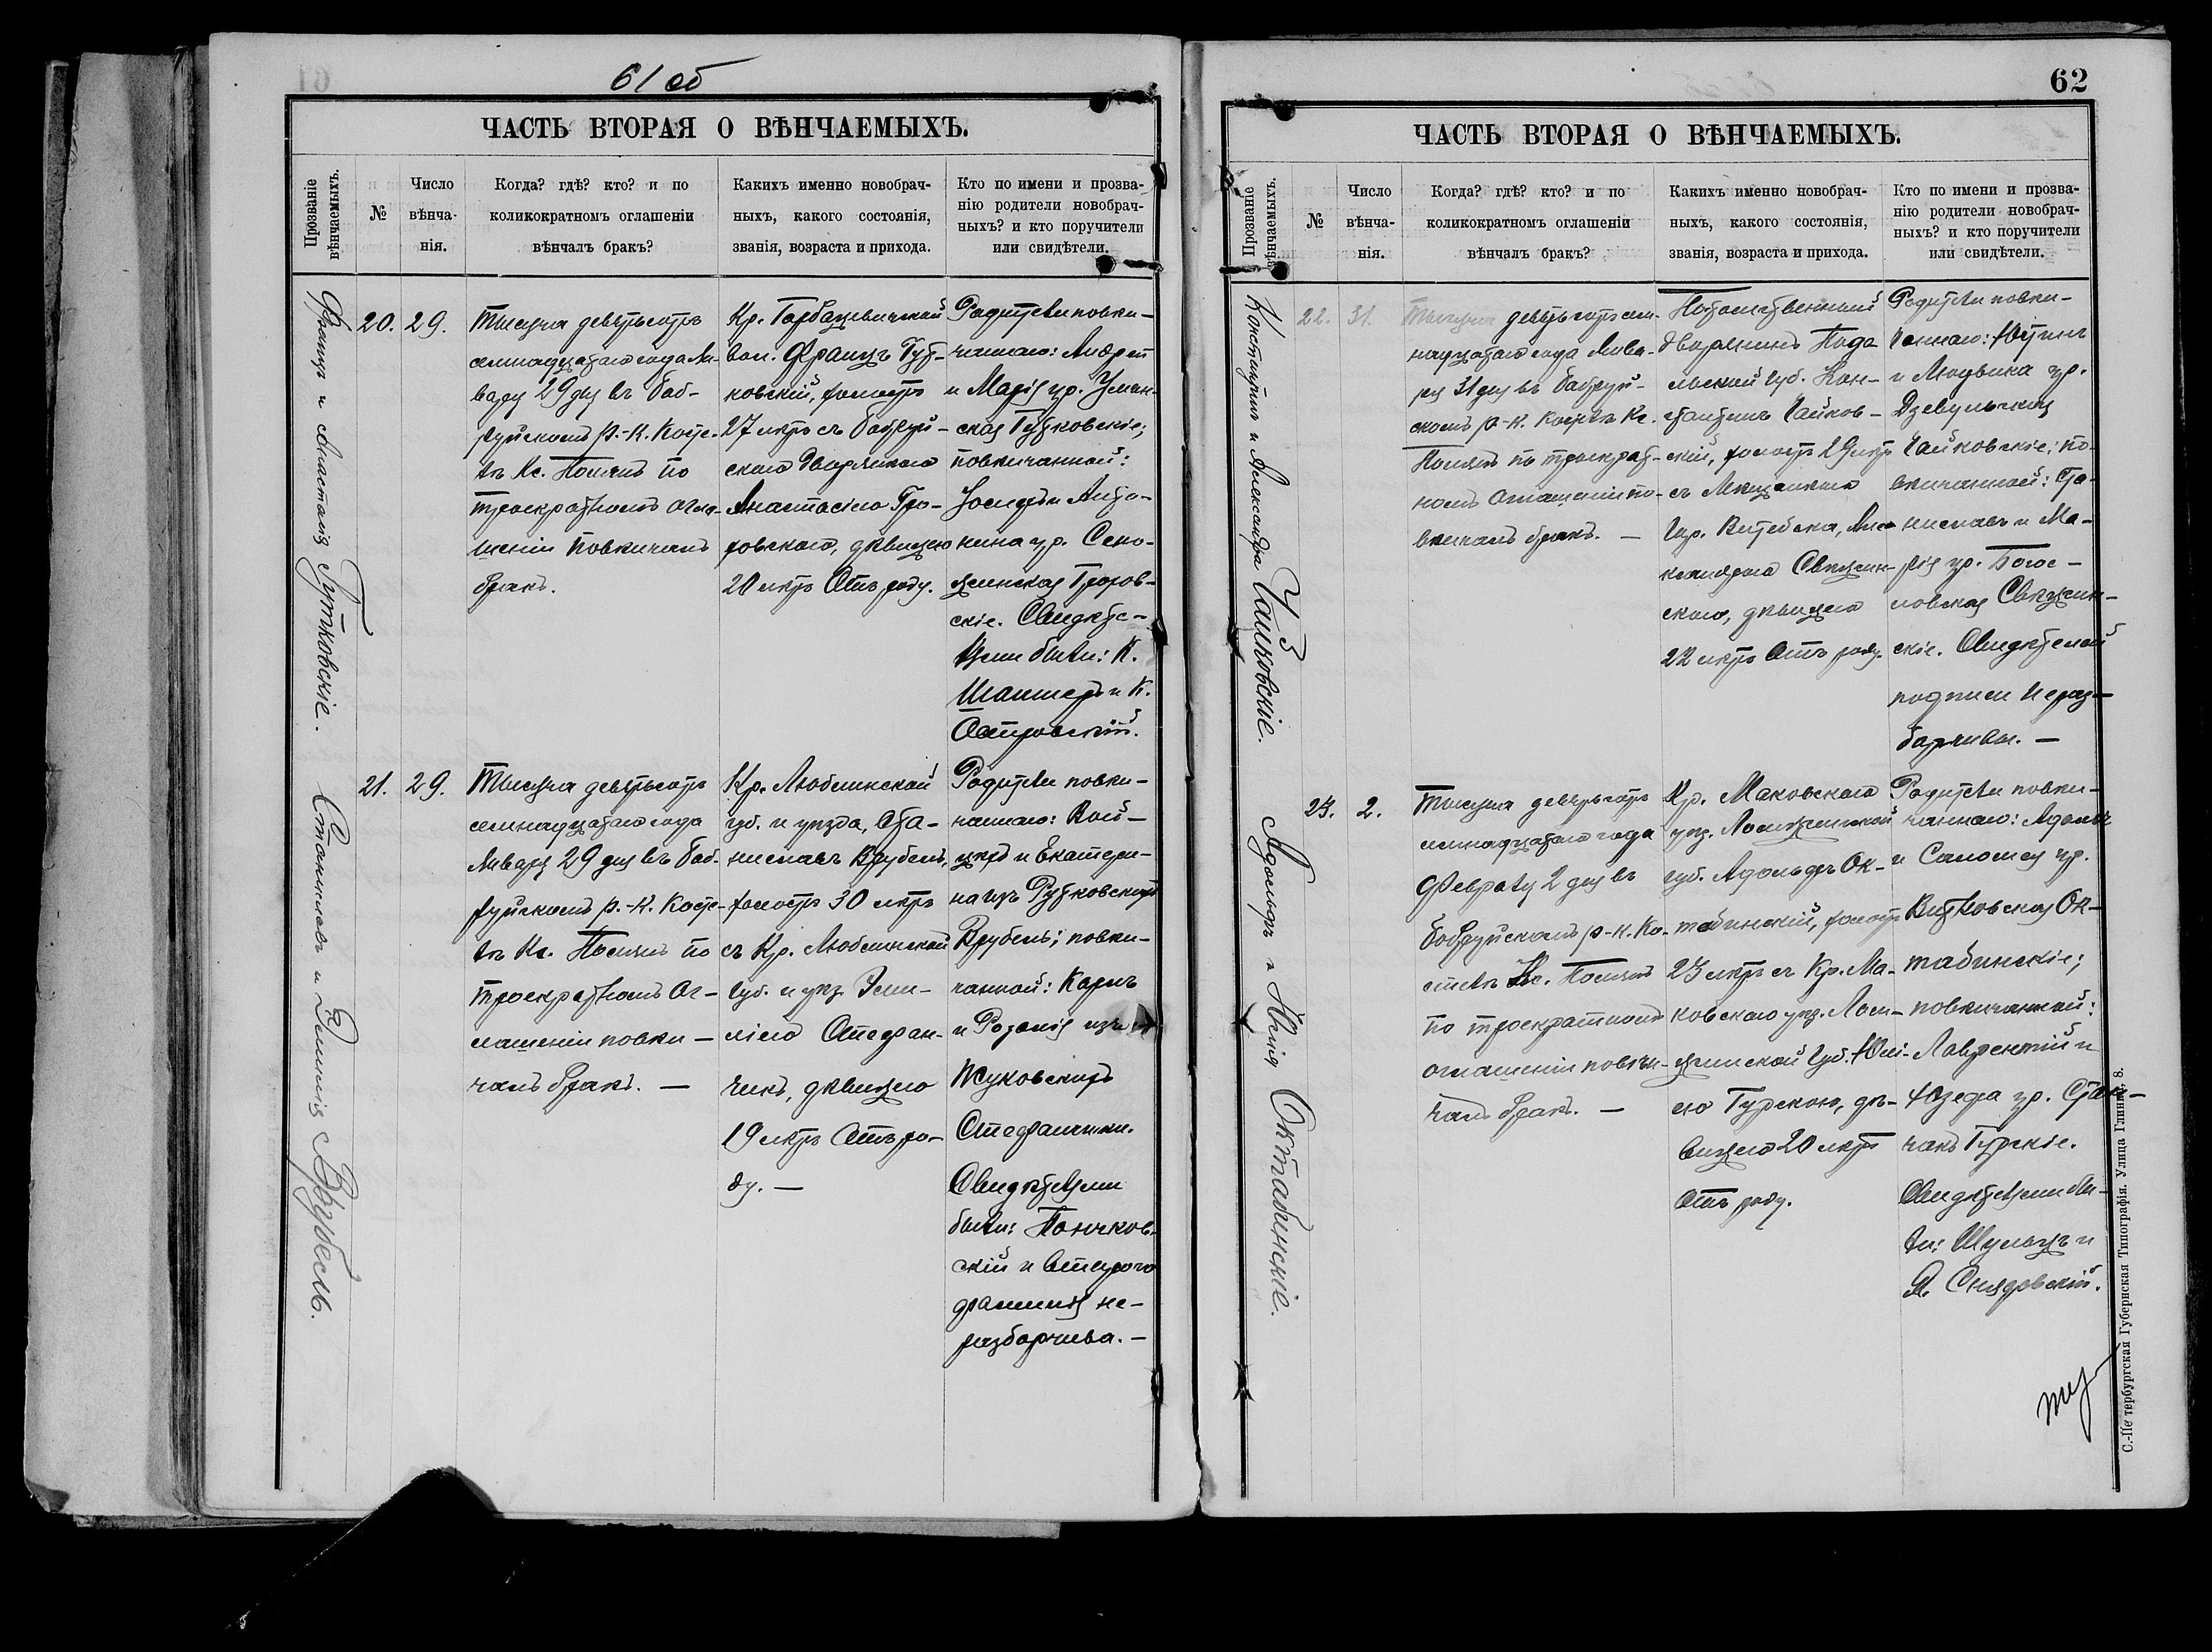 61 об
ЧАСТЬ ВТОРАЯ О ВѢНЧАЕМЫХЪ.
Прозваніе
вѣнчаемыхъ.
№
Число
вѣнча-
нія.
Когда? гдѣ? кто? и по
коликократномъ оглашеніи
вѣнчалъ бракъ?
Какихъ именно новобрач-
ныхъ, какого состоянія,
званія, возраста и прихода.
Кто по имени и прозва-
нію родители новобрач-
ныхъ? и кто поручители
или свидѣтели.
Францъ и Анастасія Гутковскіе.
20.
29.
Тысяча девятьсотъ
семнадцатаго года Ян-
варя 29 дня въ Боб-
руйскомъ р.-к. косте-
лѣ Кс. по
троекратномъ огла-
шеніи повѣнчалъ
бракъ.
Кр. Горбацевичской
вол. Францъ Гут-
ковскій, холостъ
27 лѣтъ съ Бобруй-
скою дворянкою
Анастасіею Гро-
ховскою, дѣвицею
20 лѣтъ отъ роду.
Родители повѣн-
чаннаго: Андрей
и Марія ур.
ская Гутковскіе;
повѣнчанной:
Іосифъ и Анто-
нина ур. Село-
жинская Гроховскіе.
Свидѣте-
лями были: К.
и К.
Островскій.
Станиславъ и Эмилія Врубель.
21.
29.
Тысяча девятьсотъ
семнадцатаго года
Января 29 дня въ Боб-
руйскомъ р.-к. косте-
лѣ Кс. по
троекратномъ ог-
лашеніи повѣн-
чалъ бракъ. —
Кр. Люблинской
губ. и уѣзда, Ста-
ниславъ Врубель,
холостъ 30 лѣтъ
съ Кр. Люблинской
губ. и уѣз. Эми-
ліею Стефан-
чикъ, дѣвицею
19 лѣтъ отъ ро-
ду. —
Родители повѣн-
чаннаго: Вой-
цѣхъ и Екатери-
на изъ Рутковскихъ
Врубель; повѣн-
чанной: Карлъ
и Розалія изъ
Жуковскихъ
Стефанчики.
Свидѣтелями
были: Пончков-
скій и втораго
фамилія не-
разборчива. —
62
ЧАСТЬ ВТОРАЯ О ВѢНЧАЕМЫХЪ.
Прозваніе
вѣнчаемыхъ.
№
Число
вѣнча-
нія.
Когда? гдѣ? кто? и по
коликократномъ оглашеніи
вѣнчалъ бракъ?
Какихъ именно новобрач-
ныхъ, какого состоянія,
званія, возраста и прихода.
Кто по имени и прозва-
нію родители новобрач-
ныхъ? и кто поручители
или свидѣтели.
Константинъ и Александра Чайковскіе.
22.
31.
Тысяча девятьсотъ сем-
надцатаго года Янва-
ря 31 дня въ Бобруй-
скомъ р-к. костелѣ Кс.
по троекрат-
номъ оглашеніи по-
вѣнчалъ бракъ. —
Потомственный
дворянинъ Подо-
льской губ. Кон-
стантинъ Чайков-
скій, холостъ 29 лѣтъ
съ Мѣщанкою
гор. Витебска, Але-
ксандрою
скою, дѣвицею
22 лѣтъ отъ роду.
Родители повѣн-
чаннаго: Юстинъ
и Людвика ур.
Дзевульская
Чайковскіе; по-
вѣнчанной: Ста-
ниславъ и Ма-
рія ур. Бого-
словская
скіе. Свидѣтелей
подписи нераз-
борчивы. —
Адольфъ и Юлія Октабинскіе.
23.
2.
Тысяча девятьсотъ
семнадцатаго года
Февраля 2 дня въ
Бобруйскомъ р-к. ко-
стелѣ Кс.
по троекратномъ
оглашеніи повѣн-
чалъ бракъ. —
Кр. Маковскаго
уѣз. Ломжинской
губ. Адольфъ Ок-
табинскій, холостъ
23 лѣтъ съ Кр. Ма-
ковскаго уѣз. Лом-
жинской губ. Юлі-
ею Гурскою, дѣ-
вицею 20 лѣтъ
отъ роду.
Родители повѣн-
чаннаго: Адамъ
и Саломея ур.
Витковская Ок-
табинскіе;
повѣнчанной:
Лаврентій и
Юзефа ур. Стан-
чакъ Гурскіе.
Свидѣтелями бы-
ли: Шульцъ и
Я. Снядовскій.
С.-Петербургская Губернская Типографія. Улица Глинки, 8.